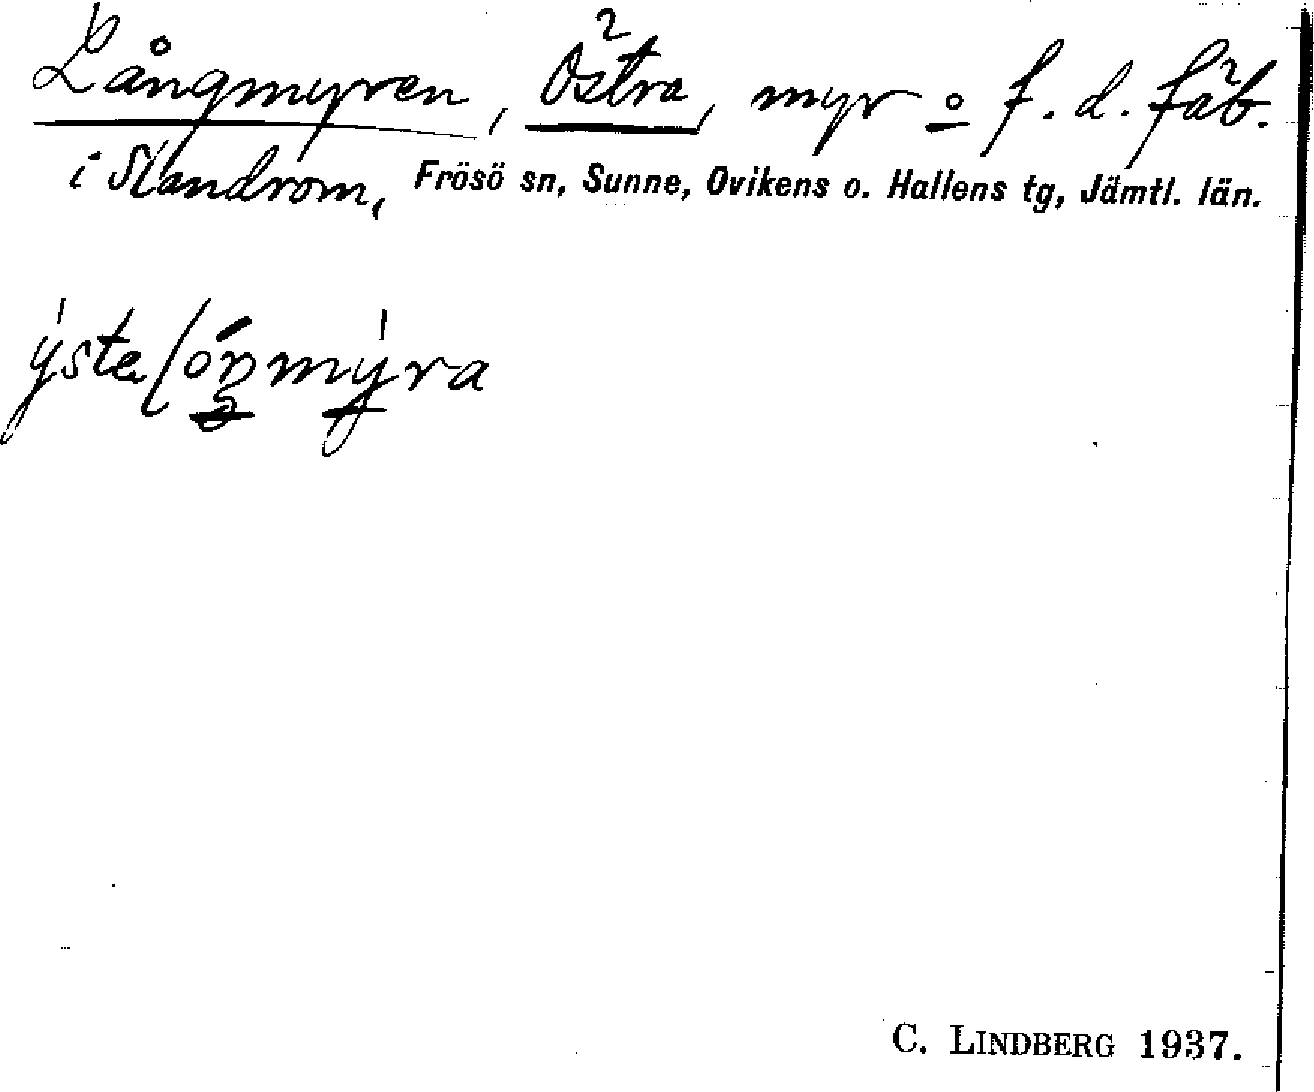 Långmyren, Östra, myr o f. d. fäb.
i Slandrom, Frösö sn, Sunne, Ovikens o. Hallens tg, Jämtl. län.
C. LINDBERG 1937.